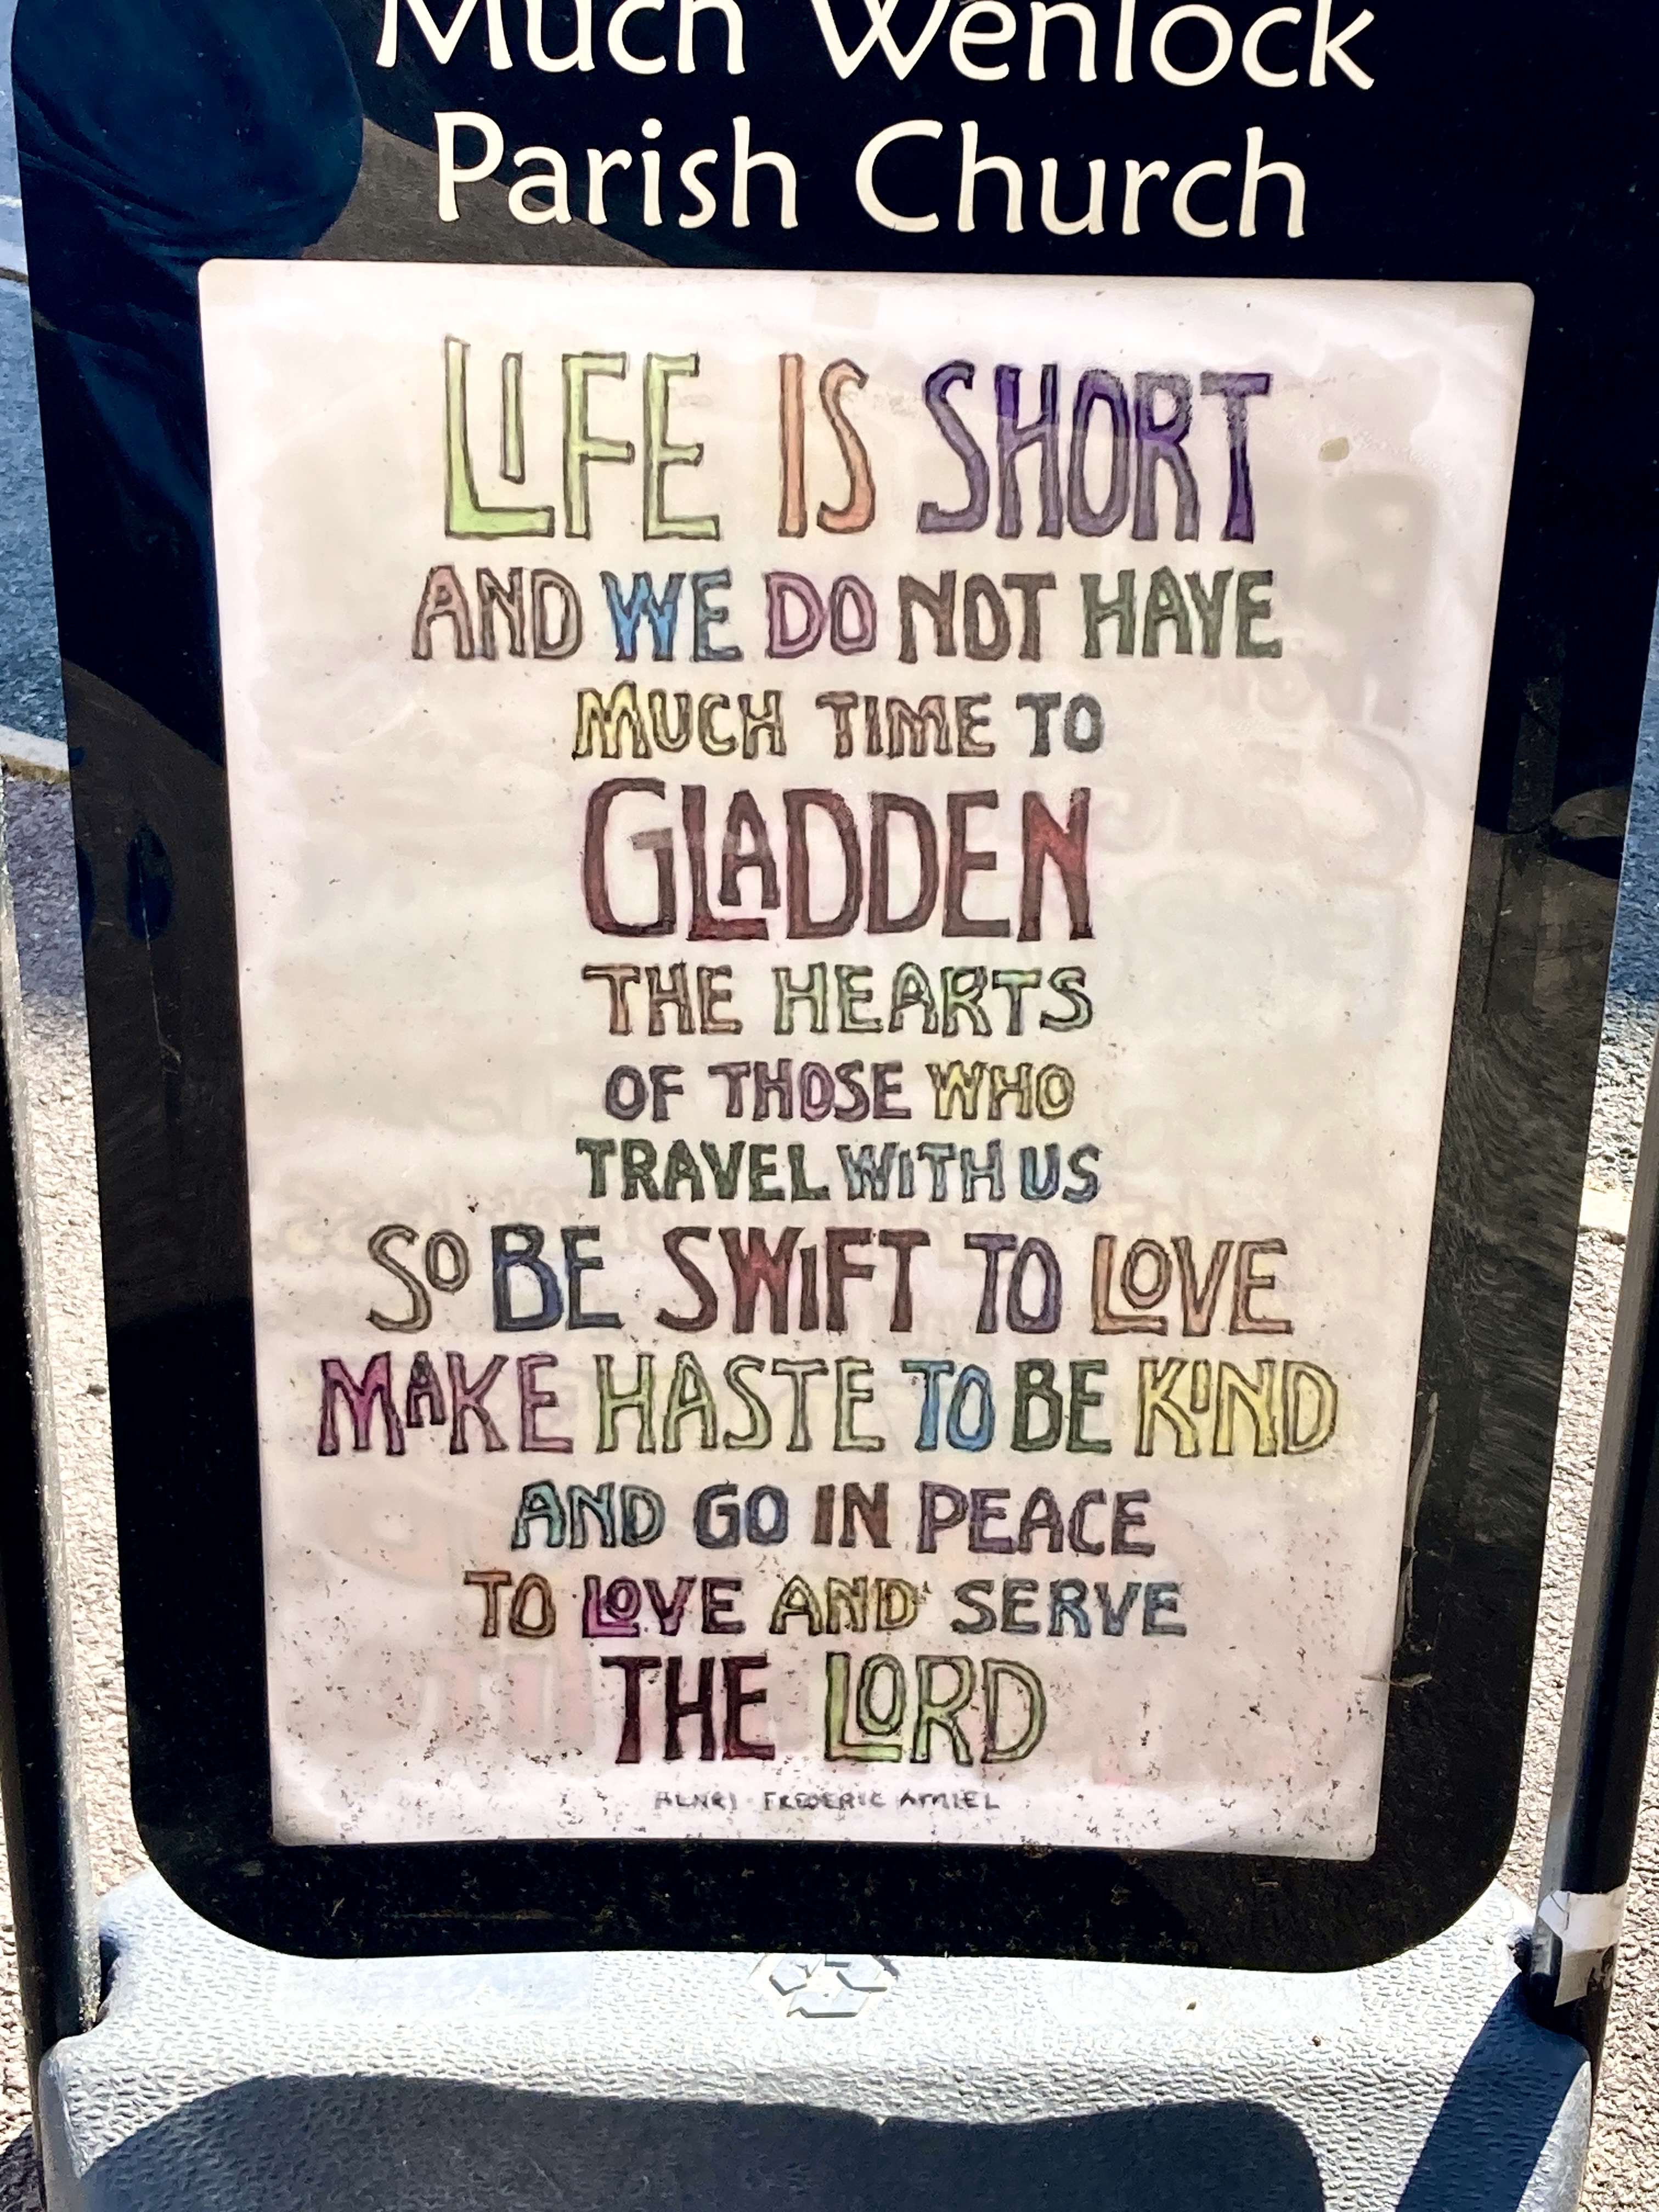 Much Wenlock
Parish Church
LIFE IS SHORT
AND WE DO NOT HAVE
MUCH TIME TO
GLADDEN
THE HEARTS
OF THOSE WHO
TRAVEL WITH US
SO BE SWIFT TO LOVE
MAKE HASTE TO BE KIND
AND GO IN PEACE
TO LOVE AND SERVE
THE LORD
HENRI FREDERIC AMIEL